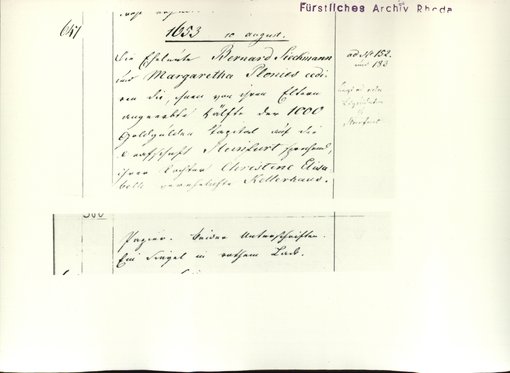 Fürstliches Archiv Rheda
641
1653 10 august.
Die Eheleute Bernard Sieckmann
und Margaretha Plonies cedi-
ren die, ihnen von ihren Eltern
angeerbte Hälfte der 1000
Goldgulden Capital auf die
Grafschaft Steinfurt sprechend,
ihrer Tochter Christine Elisa-
beth verehelichte Kellerhaus.
ad No 152.
und 193
Steinfurt
300
Papier. Beider Unterschriften.
Ein Siegel in rothem Lack.